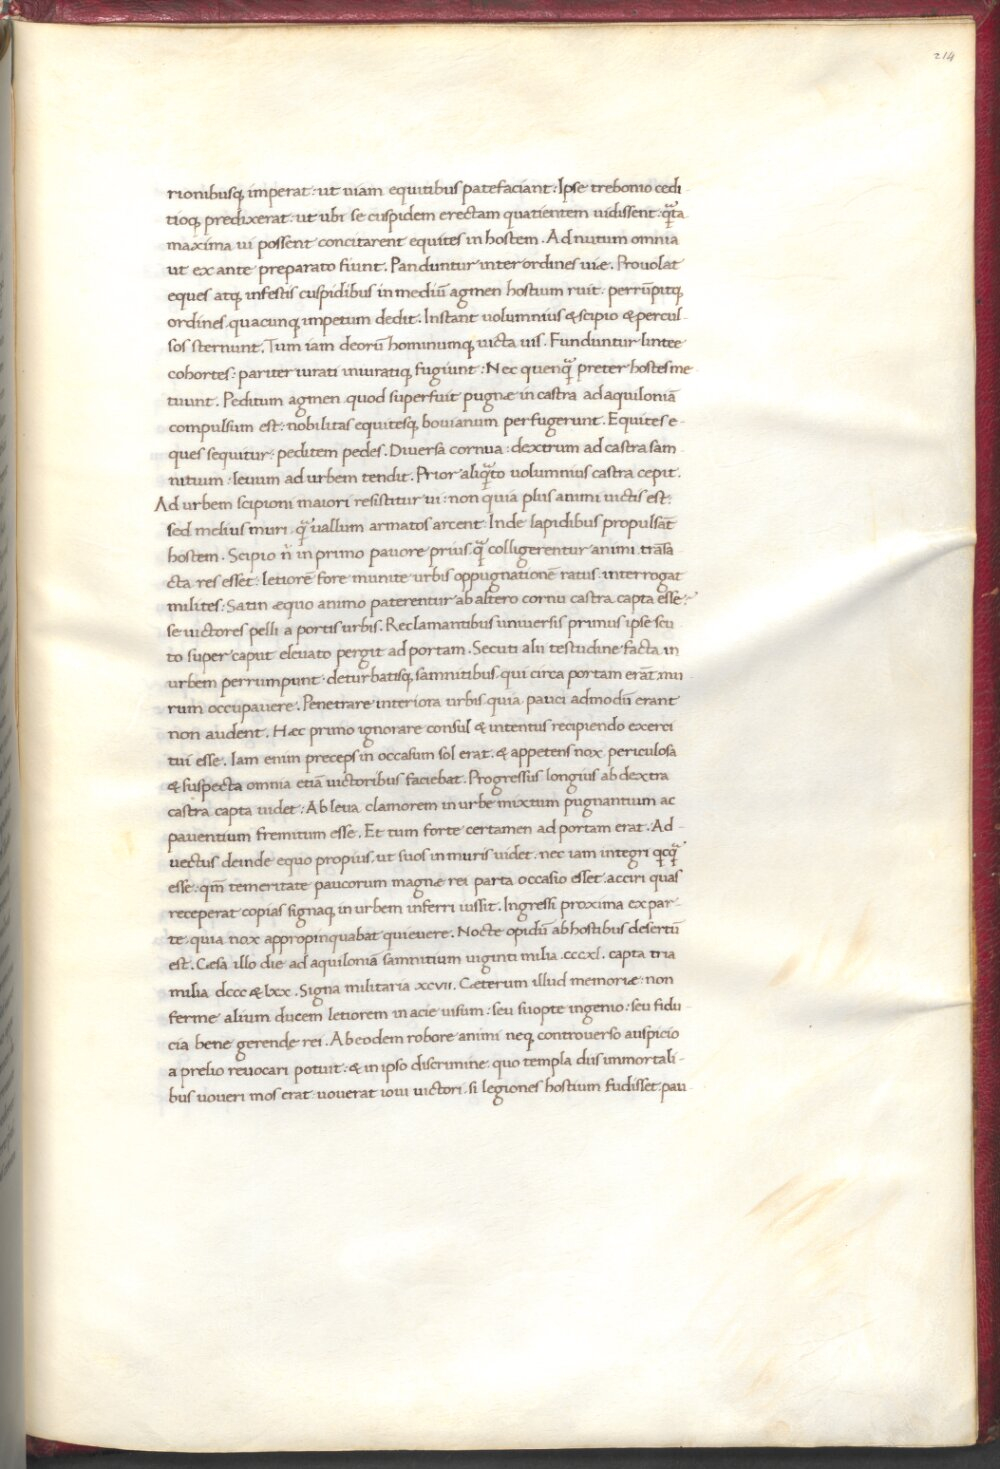 214
rionibusq; imperat: ut uiam equitibus patefaciant: Ipse trebonio cedi-
tioq; predixerat: ut ubi se cuspidem erectam quatientem uidissent: q̃ta
maxima ui possent concitarent equites in hostem. Ad nutum omnia
ut ex ante preparato fiunt. Panduntur inter ordines uiæ. Prouolat
eques atq; infestis cuspidibus in mediũ agmen hostium ruit: perrũpitq;
ordines, quacunq; impetum dedit. Instant uolumnius & scipio & percul-
sos sternunt. Tum iam deorũ hominumq; uicta uis. Funduntur lintee
cohortes: pariter iurati iniuratiq; fugiunt: Nec quenq̃ preter hostes me
tuunt. Peditum agmen quod superfuit pugnæ in castra ad aquiloniã
compulsum est: nobilitas equitesq; bouianum perfugerunt. Equites e-
ques sequitur: peditem pedes. Diuersa cornua: dextrum ad castra sam
nitium: leuum ad urbem tendit. Prior aliq̃to uolumnius castra cepit.
Ad urbem scipioni maiori resistitur ui: non quia plus animi uictis est:
sed melius muri q̃ uallum armatos arcent: Inde lapidibus propulsãt
hostem. Scipio ñ in primo pauore prius q̃ colligerentur animi trãsa
cta res esset: letiorẽ fore munite urbis oppugnationẽ ratus interrogat
milites: Satin æquo animo paterentur ab altero cornu castra capta esse:
se uictores pelli a portis urbis. Reclamantibus uniuersis primus ipse scu
to super caput eleuato pergit ad portam. Secuti alii testudine facta in
urbem perrumpunt: deturbatisq; samnitibus qui circa portam erãt mu
rum occupauere. Penetrare interiora urbis quia pauci admodũ erant
non audent. Hæc primo ignorare consul & intentus recipiendo exerci
tui esse. Iam enim preceps in occasum sol erat & appetens nox periculosa
& suspecta omnia etiã uictoribus faciebat. Progressus longius ab dextra
castra capta uidet: Ab leua clamorem in urbe mixtum pugnantium ac
pauentium fremitum esse. Et tum forte certamen ad portam erat. Ad-
uectus deinde equo propius, ut suos in muris uidet nec iam integri qcq̃
esse: qm̃ temeritate paucorum magnæ rei parta occasio esset acciri quas
receperat copias signaq; in urbem inferri iussit. Ingressi proxima ex par-
te quia nox appropinquabat quieuere. Nocte opidũ ab hostibus desertũ
est. Cæsa illo die ad aquiloniã samnitium uiginti milia .cccxl. capta tria
milia dccc & lxx. Signa militaria xcvii. Cæterum illud memoriæ: non
ferme alium ducem letiorem in acie uisum: seu suopte ingenio: seu fidu
cia bene gerende rei. Ab eodem robore animi neq; controuerso auspicio
a prelio reuocari potuit: & in ipso discrimine quo templa diis immortali-
bus uoueri mos erat uouerat ioui uictori si legiones hostium fudisset pau